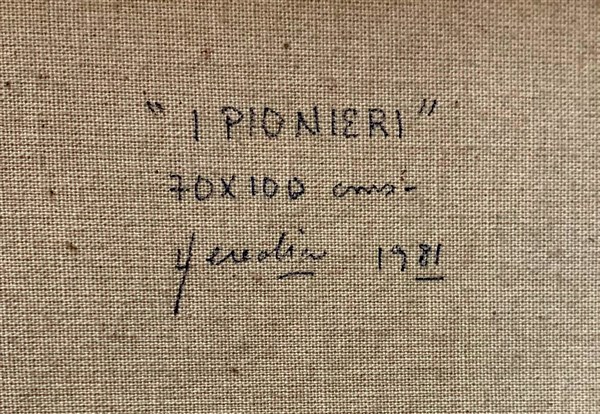 "I PIONIERI"
70X100 cms-
1981